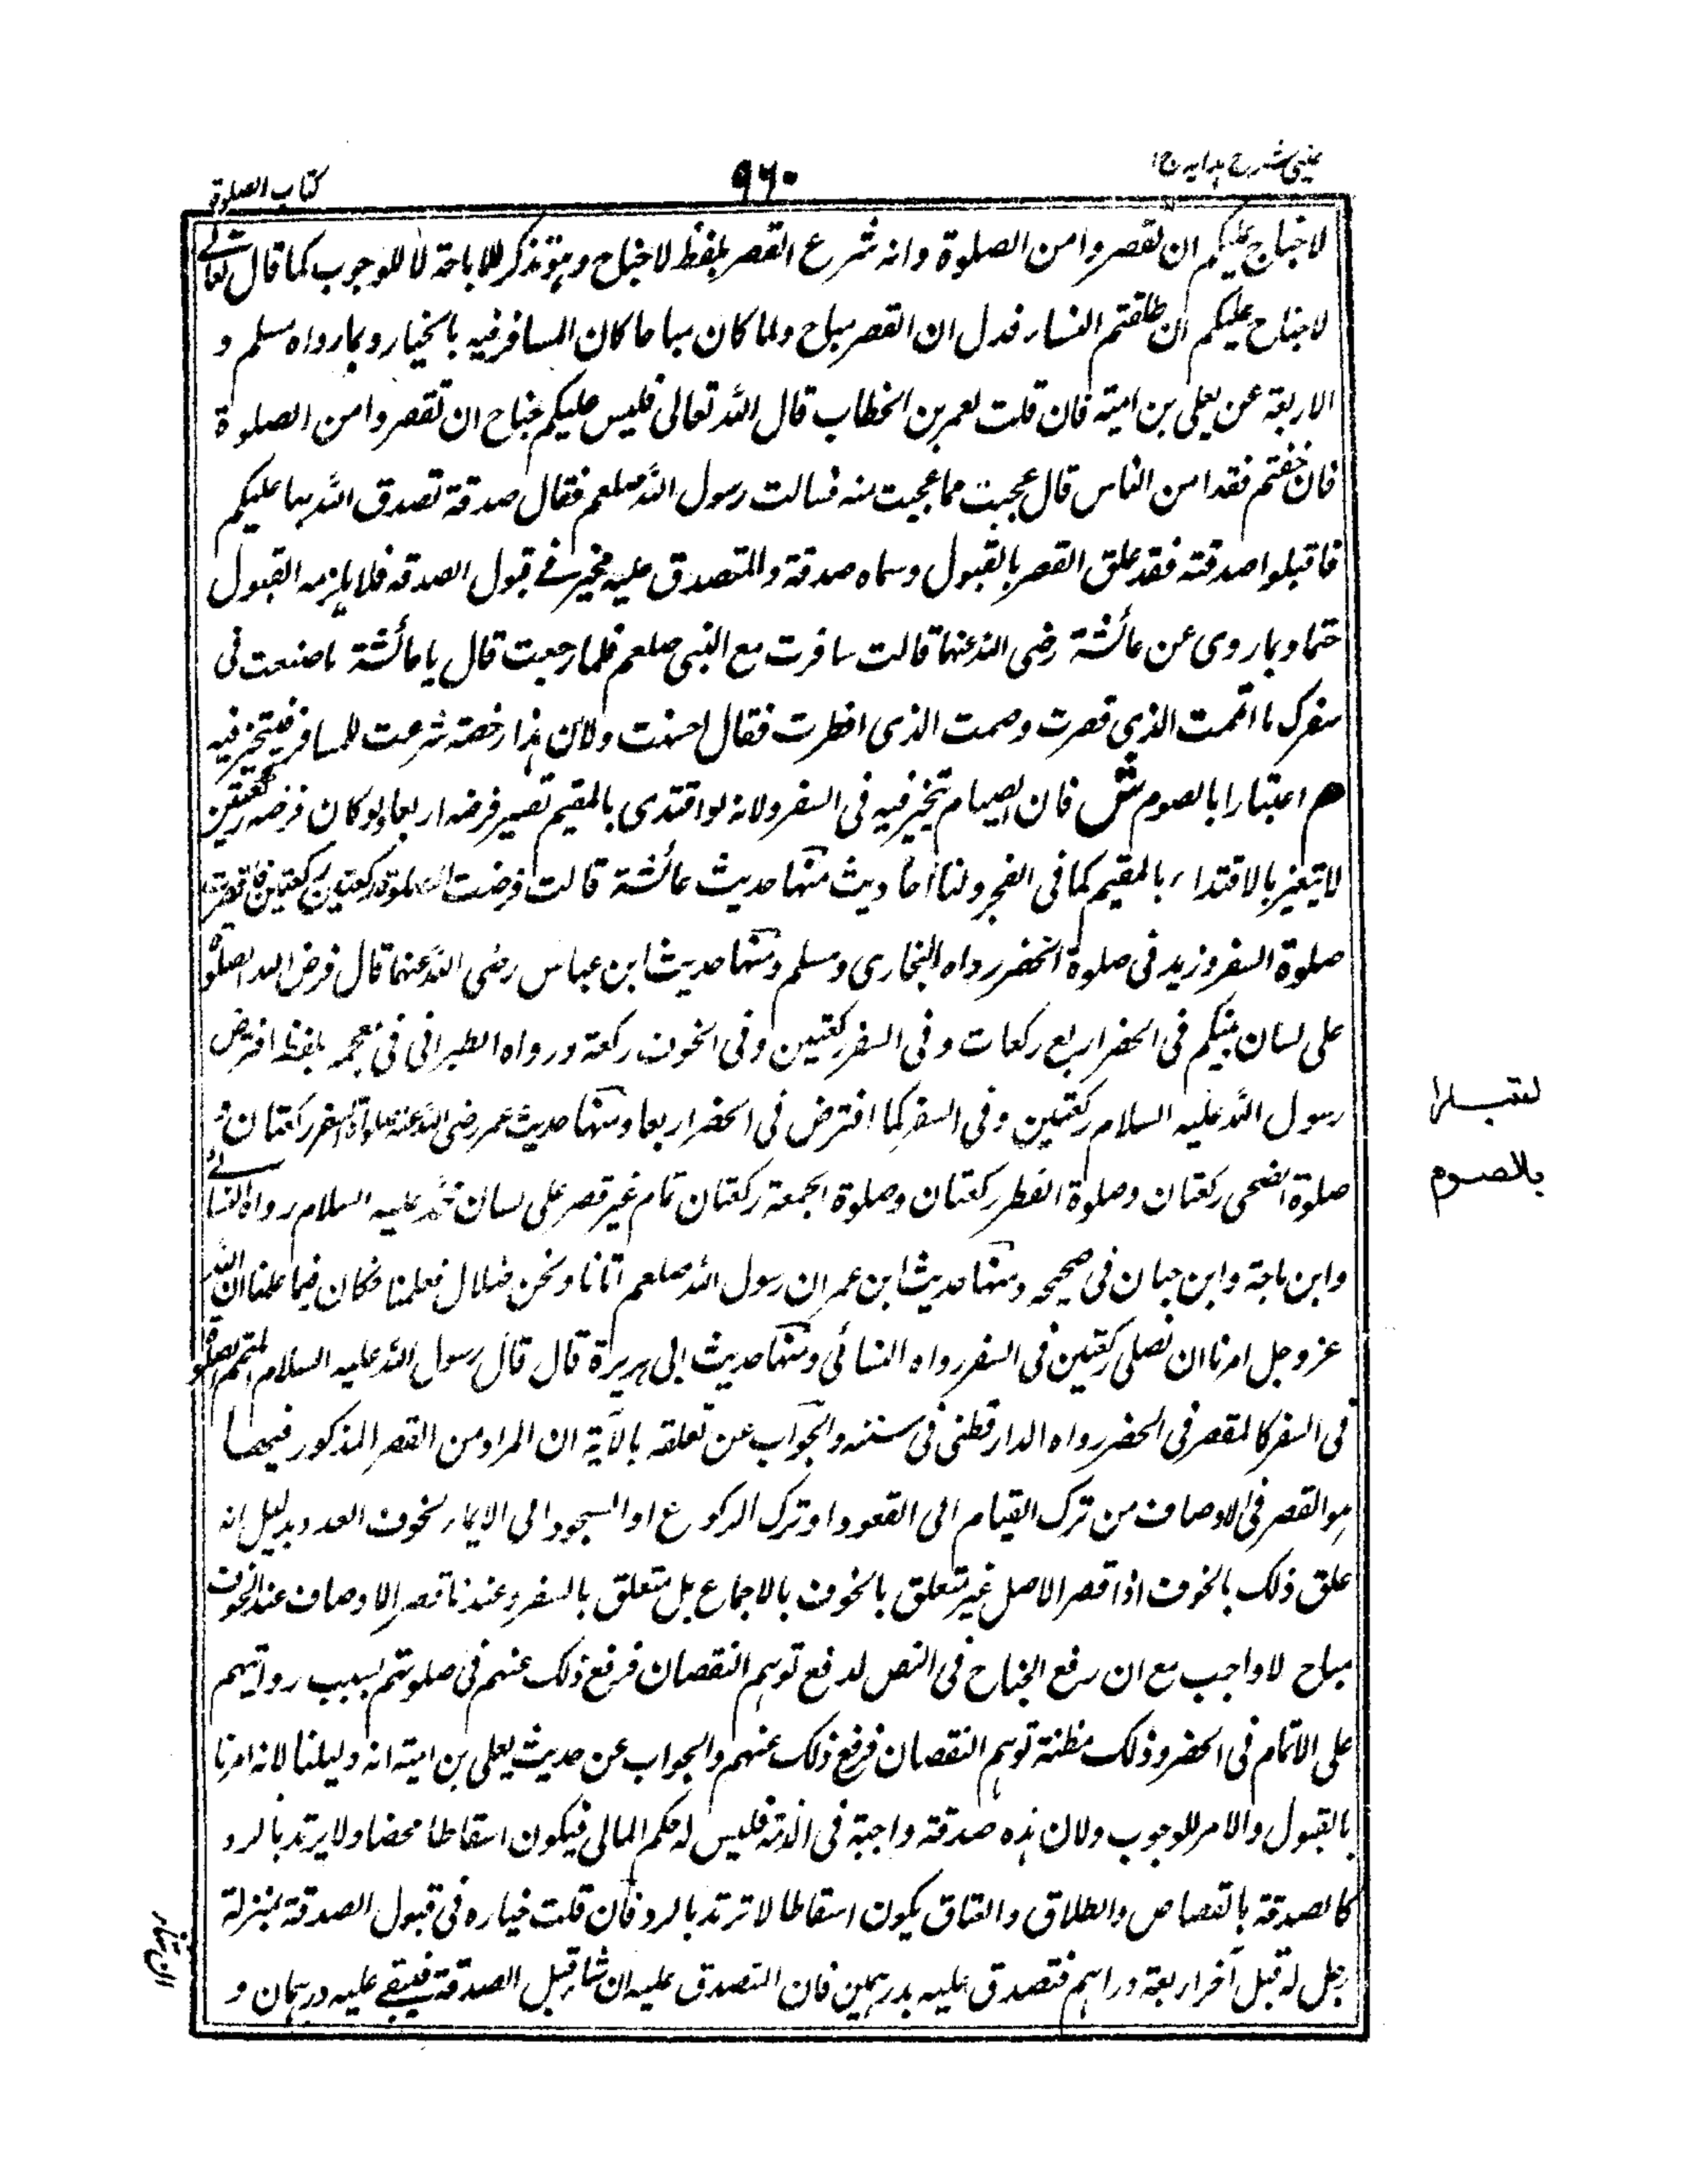 عینی شرح ہدایہ ج۱
۹۶۰
کتاب الصلوة
لاجناح علیکم ان تقصروا من الصلوة وانه شرع القصر بلفظ لاجناح وہو تذکر للاباحة لا للوجوب کما قال تعالے
لاجناح علیکم ان طلقتم النساء فدل ان القصر مباح ولما کان مباحا کان المسافر فیه بالخیار وبما رواه مسلم و
الاربعة عن یعلی بن امیة فان قلت لعمر بن الخطاب قال الله تعالی فلیس علیکم جناح ان تقصروا من الصلوة
فان خفتم فقد امن الناس قال عجبت مما عجبت منه فسالت رسول الله صلعم فقال صدقة تصدق الله بہا علیکم
فاقبلوا صدقته فقد علق القصر بالقبول وسماه صدقة والمتصدق علیه مخیر فے قبول الصدقه فلا یلزمه القبول
حتما وبما روی عن عائشة رضی الله عنہا قالت سافرت مع النبی صلعم فلما رجعت قال یا عائشة ما صنعت فی
سفرک ما اتممت الذی قصرت وصمت الذی افطرت فقال احسنت ولان ہذا رخصة شرعت للمسافر فیتخیر فیه
ھم اعتبارا بالصوم ش فان الصیام یتخیر فیه فی السفر ولانه لو اقتدی بالمقیم تصیر فرضه اربعا ولو کان فرضه رکعتین
لا یتغیر بالاقتداء بالمقیم کما فی الفجر ولنا احادیث منہا حدیث عائشة قالت فرضت الصلوة رکعتین رکعتین فاقرت
صلوة السفر وزید فی صلوة الحضر رواه البخاری ومسلم ومنہا حدیث ابن عباس رضی الله عنہما قال فرض الله الصلوة
علی لسان نبیکم فی الحضر اربع رکعات وفی السفر رکعتین وفی الخوف رکعة ورواه الطبرانی فی معجمہ بلفظ افترض
رسول الله علیه السلام رکعتین وفی السفر کما افترض فی الحضر اربعا ومنہا حدیث عمر رضی الله عنه صلوة السفر رکعتان و
صلوة الضحی رکعتان وصلوة الفطر رکعتان وصلوة الجمعة رکعتان تمام غیر قصر علی لسان محمد علیه السلام رواه النسائے
وابن ماجة وابن حبان فی صحیحہ ومنہا حدیث ابن عمر ان رسول الله صلعم اتانا ونحن ضلال فعلمنا فکان فیما علمنا ان الله
عز وجل امرنا ان نصلی رکعتین فی السفر رواه النسائی ومنہا حدیث ابی ہریرة قال قال رسول الله علیه السلام المتمم الصلوة
فی السفر کالمقصر فی الحضر رواه الدارقطنی فی سننه والجواب عن تعلقه بالآیة ان المراد من القصر المذکور فیھا
ہو القصر فی الاوصاف من ترک القیام الی القعود او ترک الرکوع او السجود الی الایماء لخوف العدو بدلیل انه
علق ذلک بالخوف اذا قصر الاصل غیر متعلق بالخوف بالاجماع بل متعلق بالسفر وعندنا قصر الاوصاف عند الخوف
مباح لا واجب مع ان رفع الجناح فی النص لدفع توہم النقصان فرفع ذلک عنہم فی صلوتہم بسبب روایتہم
علی الاتمام فی الحضر وذلک مظنة توہم النقصان فرفع ذلک عنہم والجواب عن حدیث یعلی بن امیة انه دلیلنا لانه امرنا
بالقبول والامر للوجوب ولان ہذه صدقة واجبة فی الذمة فلیس له حکم المالی فیکون اسقاطا محضا ولا یرتد بالرد
کالصدقة بالقصاص والطلاق والعتاق یکون اسقاطا لا ترتد بالرد فان قلت خیاره فی قبول الصدقة بمنزلة
رجل له قبل آخر اربعة دراہم فتصدق علیه بدرہمین فان المتصدق علیه ان شاء قبل الصدقة فیبقے علیه درہمان و
بالصوم